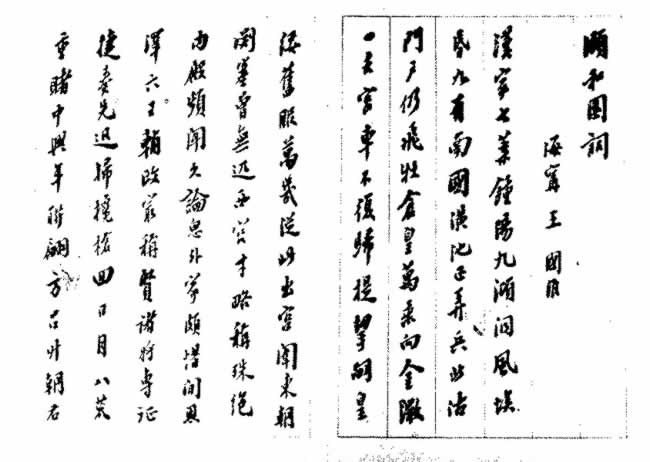 頤和園詞
海寧 王國
漢家七葉鍾陽九澒洞風埃
昏九有南國潢池正弄兵北沽
門戶仍飛牡倉皇萬乘向金微
一去宮車不復歸提挈嗣皇
綏舊服萬幾從此出宮闈東朝
淵塞曾無匹西宮才略稱殊絕
內殿頻聞久論思外家頗惜閒恩
澤六王輔政最稱賢諸將專征
捷奏先迅掃欃槍回日月八荒
重睹中興年聯翩方召升朝右